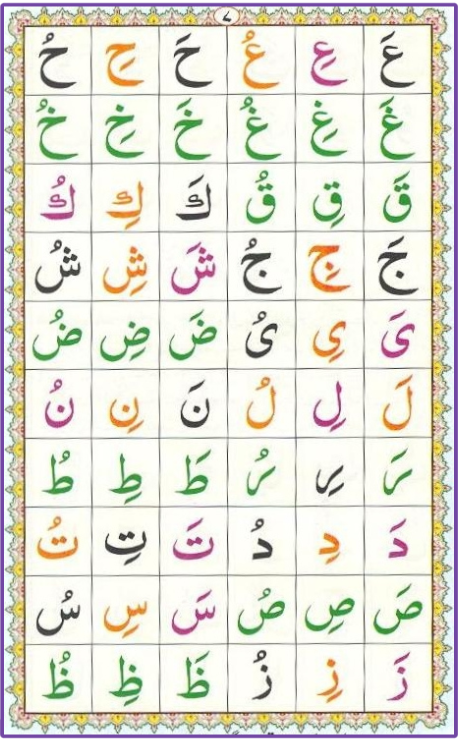 ٧
عَ عِ عُ حَ حِ حُ
غَ غِ غُ خَ خِ خُ
قَ قِ قُ كَ كِ كُ
جَ جِ جُ شَ شِ شُ
یَ یِ یُ ضَ ضِ ضُ
لَ لِ لُ نَ نِ نُ
رَ رِ رُ طَ طِ طُ
دَ دِ دُ تَ تِ تُ
صَ صِ صُ سَ سِ سُ
زَ زِ زُ ظَ ظِ ظُ